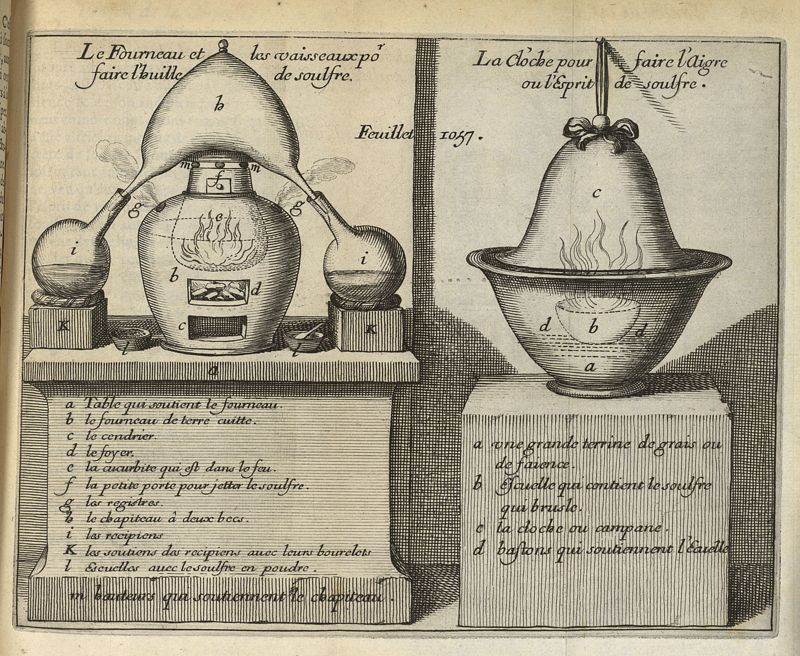 Le Fourneau et les vaisseaux po^r
faire l'huille de soulfre.
Feuillet 1057.
h
m f m
g e g
i b d i
K c K
l l
a
a Table qui soutient le fourneau.
b le fourneau de terre cuitte.
c le cendrier.
d le foyer.
e la cucurbite qui est dans le feu.
f la petite porte pour jetter le soulfre.
g les registres.
h le chapiteau à deux becs.
i les recipiens
K les soutiens des recipiens avec leurs bourelets
l Escuelles avec le soulfre en poudre.
m hauteurs qui soutiennent le chapiteau.
La Cloche pour faire l'Aigre
ou l'Esprit de soulfre.
c
d b d
a
a vne grande terrine de grais ou
de faience.
b Escuelle qui contient le soulfre
qui brusle.
c la cloche ou campane.
d bastons qui soutiennent l'Ecuelle